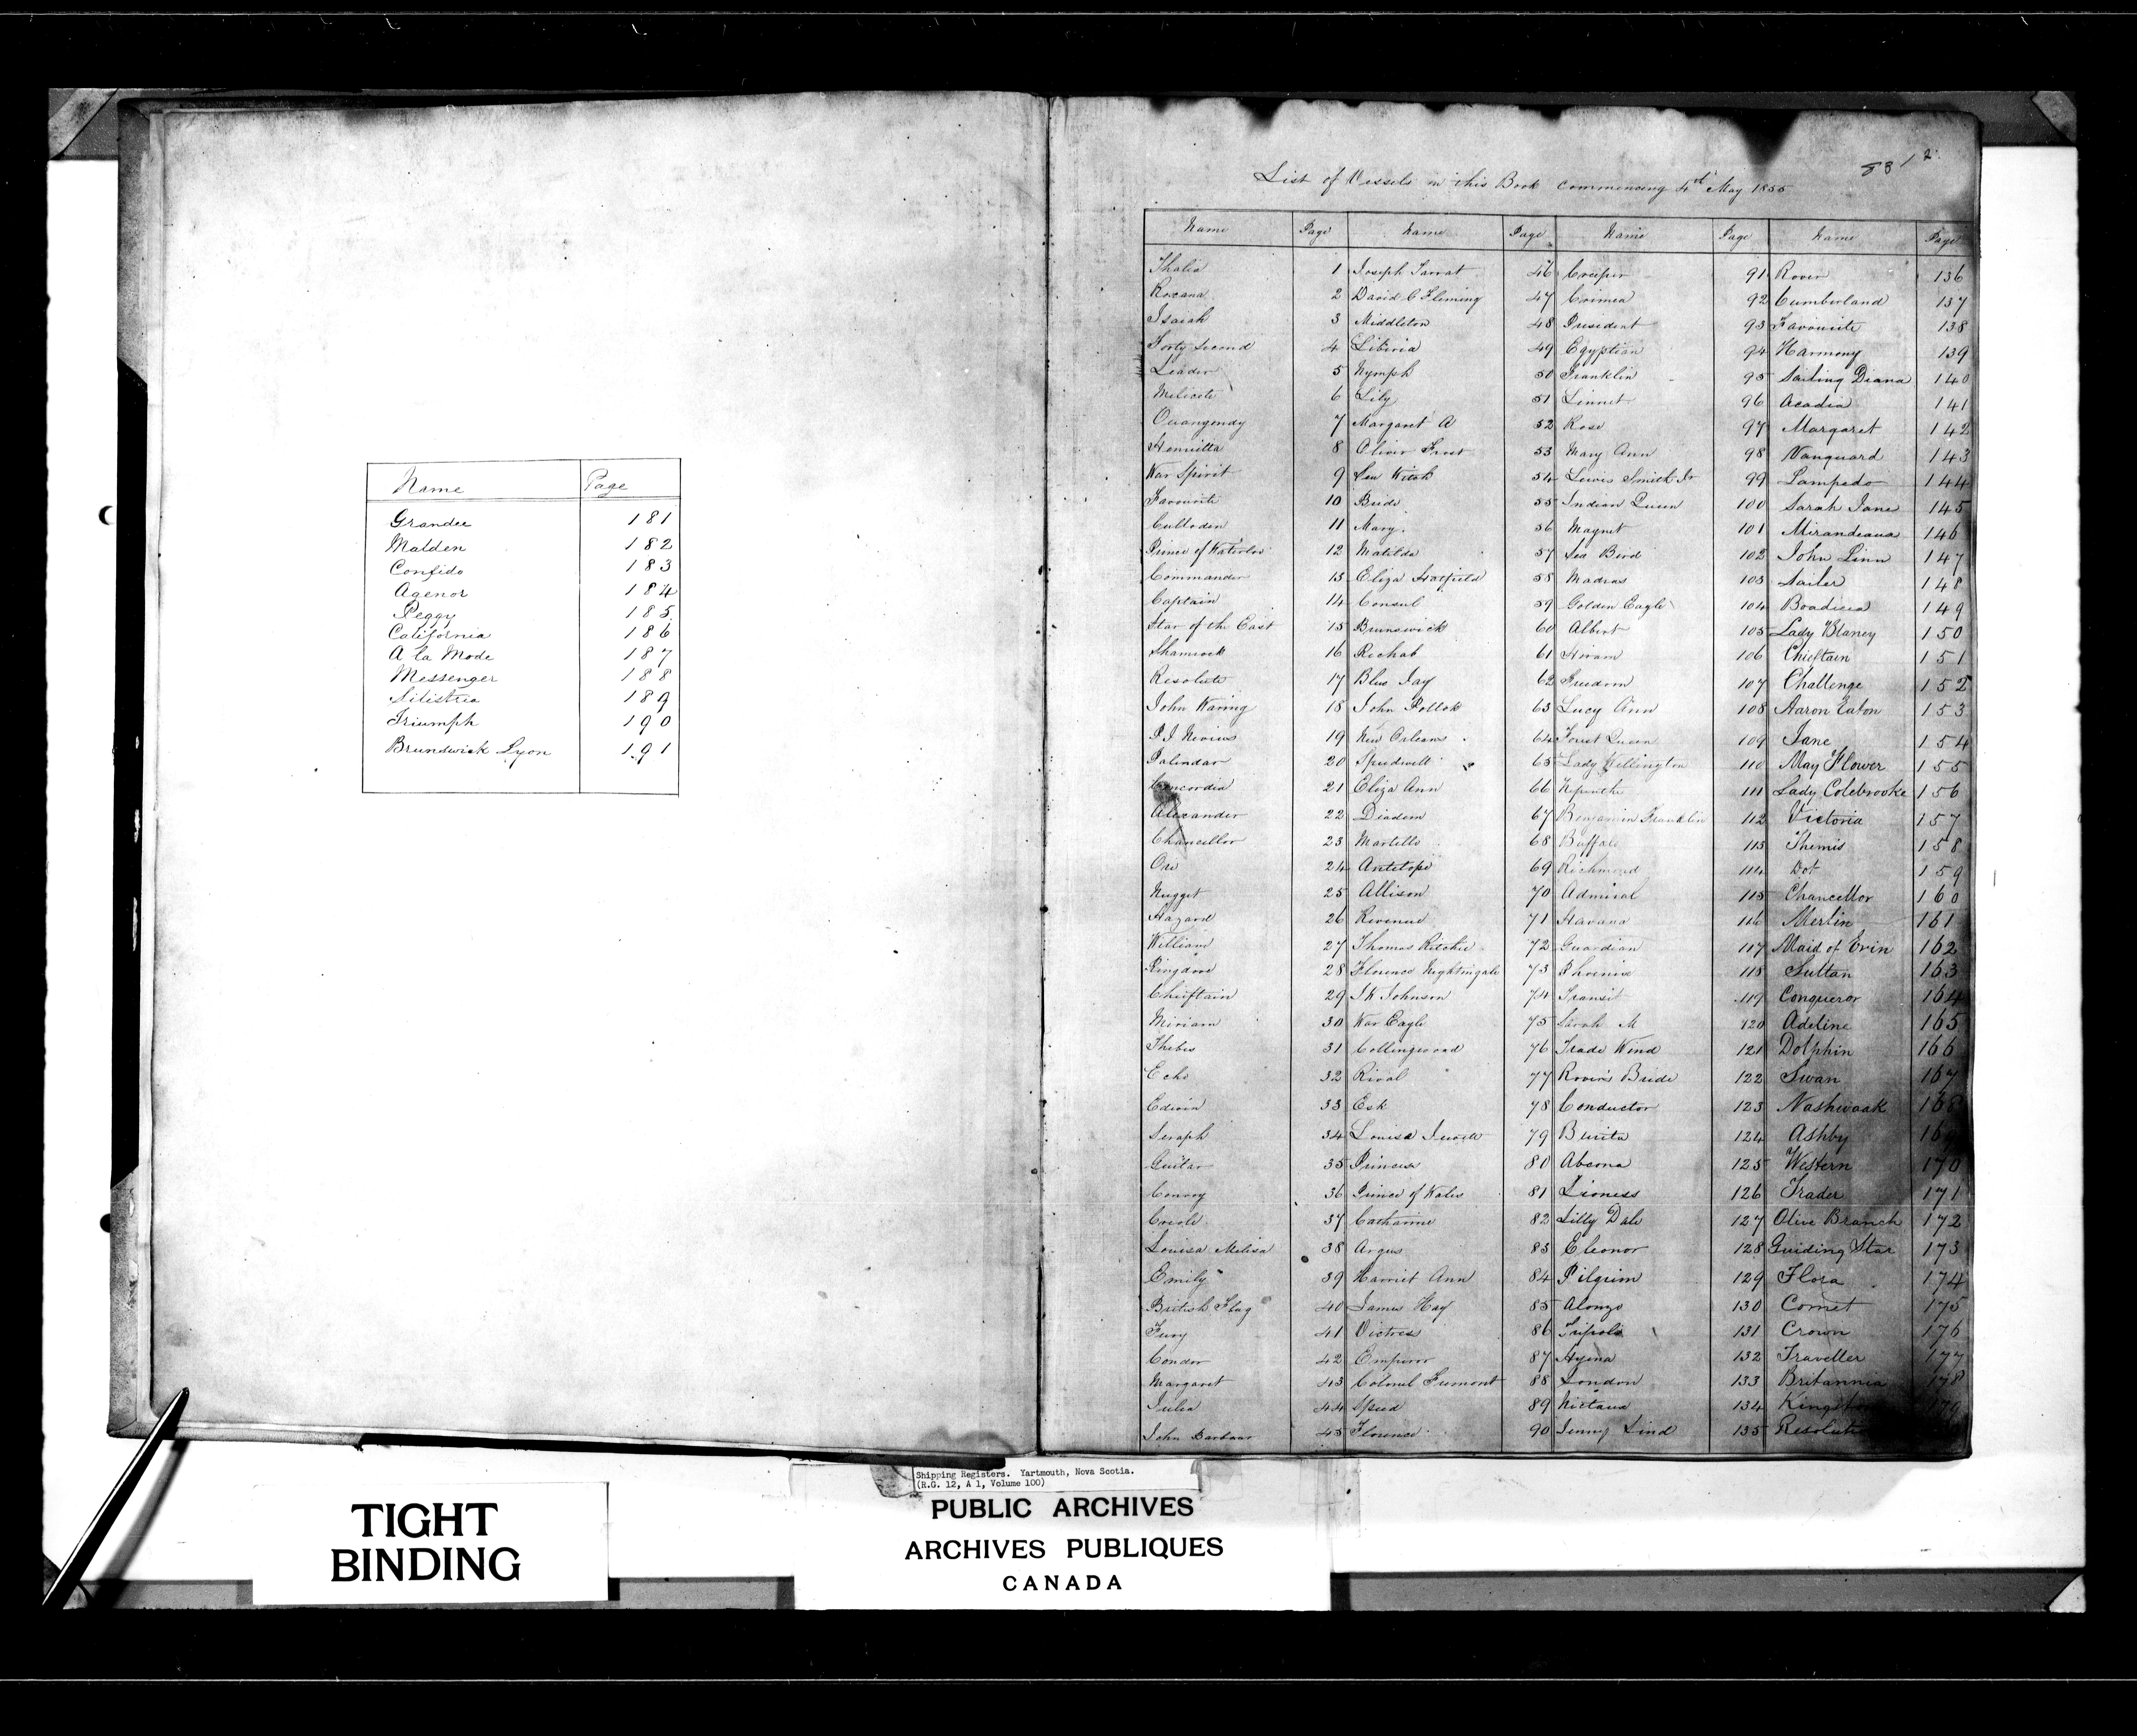 Name Page
Grandee 181
Malden 182
Confido 183
Agenor 184
Peggy 185
California 186
A la Mode 187
Messenger 188
Silistria 189
Triumph 190
Brunswick Lyon 191
List of Vessels in this Book commencing 4th May 1855
Name Page Name Page Name Page Name Page
Thalia 1 Joseph Tarrat 46 Creeper 91 Rover 136
Roxana 2 David C Fleming 47 Crimea 92 Cumberland 137
Isaiah 3 Middleton 48 President 93 Favourite 138
Forty Second 4 Liberia 49 Egyptian 94 Harmony 139
Leader 5 Nymph 50 Franklin 95 Sailing Diana 140
Melicete 6 Lily 51 Linnet 96 Acadia 141
Ouangondy 7 Margaret A 52 Rose 97 Margaret 142
Henrietta 8 Oliver Frost 53 Mary Ann 98 Vanguard 143
War Spirit 9 Sea Witch 54 Lewis Smith Jr 99 Lampedo 144
Favourite 10 Bride 55 Indian Queen 100 Sarah Jane 145
Culloden 11 Mary 56 Magnet 101 Mirandeana 146
Prince of Waterloo 12 Matilda 57 Sea Bird 102 John Linn 147
Commander 13 Eliza Hatfield 58 Madras 103 Sailer 148
Captain 14 Consul 59 Golden Eagle 104 Boadicea 149
Star of the East 15 Brunswick 60 Albert 105 Lady Blaney 150
Shamrock 16 Rechab 61 Hiram 106 Chieftain 151
Resolute 17 Blue Jay 62 Freedom 107 Challenge 152
John Waring 18 John Pollok 63 Lucy Ann 108 Aaron Eaton 153
P. I. Nevius 19 New Orleans 64 Forest Queen 109 Jane 154
Palindar 20 Speedwell 65 Lady Wellington 110 May Flower 155
Concordia 21 Eliza Ann 66 Nepenthe 111 Lady Colebrooke 156
Alexander 22 Diadem 67 Benjamin Franklin 112 Victoria 157
Chancellor 23 Martello 68 Buffalo 113 Themis 158
Ore 24 Antelope 69 Richmond 114 Dot 159
Nugget 25 Allison 70 Admiral 115 Chancellor 160
Hazard 26 Revenue 71 Havana 116 Merlin 161
William 27 Thomas Ritchie 72 Guardian 117 Maid of Erin 162
Ringdove 28 Florence Nightingale 73 Phoenix 118 Sultan 163
Chieftain 29 J K Johnson 74 Transit 119 Conqueror 164
Miriam 30 War Eagle 75 Sarah M 120 Adeline 165
Thebes 31 Collingwood 76 Trade Wind 121 Dolphin 166
Echo 32 Rival 77 Rover's Bride 122 Swan 167
Edwin 33 Esk 78 Conductor 123 Nashwaak 168
Seraph 34 Louisa 79 Burita 124 Ashby 169
Guitar 35 Princess 80 Abeona 125 Western 170
Convoy 36 Prince of Wales 81 Lioness 126 Trader 171
Creole 37 Catharine 82 Lilly Dale 127 Olive Branch 172
Louisa Melisa 38 Argus 83 Eleonor 128 Guiding Star 173
Emily 39 Harriet Ann 84 Pilgrim 129 Flora 174
British Flag 40 James Hay 85 Alonzo 130 Comet 175
Fury 41 Victress 86 Tripoli 131 Crown 176
Condor 42 Emperor 87 Ayena 132 Traveller 177
Margaret 43 Colonel Fremont 88 London 133 Britannia 178
Julia 44 Speed 89 Nictaux 134 179
John Barbour 45 Florence 90 Jenny Lind 135
Shipping Registers. Yartmouth, Nova Scotia.
(R.G. 12, A 1, Volume 100)
TIGHT
BINDING
PUBLIC ARCHIVES
ARCHIVES PUBLIQUES
CANADA